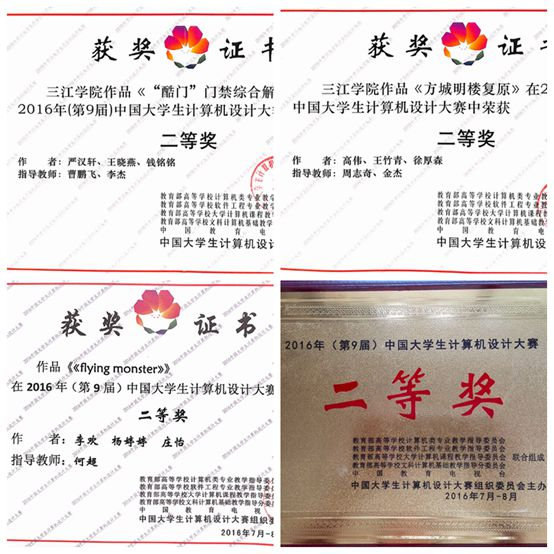 获奖证书
三江学院作品《“酷门”门禁综合解
2016年(第9届)中国大学生计算机设计大
二等奖
作 者：严汉轩、王晓燕、钱铭铭
指导教师：曹鹏飞、李杰
教育部高等学校计算机类专业教学
教育部高等学校软件工程专业教
教育部高等学校大学计算机课程教
教育部高等学校文科计算机基础教学
中国教育电
中国大学生计算机设计
获奖证书
三江学院作品《方城明楼复原》在2
中国大学生计算机设计大赛中荣获
二等奖
作 者：高伟、王竹青、徐厚森
指导教师：周志奇、金杰
教育部高等学校计算机类专
教育部高等学校软件工程
教育部高等学校大学计算机课
教育部高等学校文科计算机基
中国教育
中国大学生计算机设计
获奖证书
作品《«flying monster»》
在2016年（第9届）中国大学生计算机设计大赛
二等奖
作 者：李欢 杨婷婷 庄怡
指导教师：何超
教育部高等学校计算机类专业教学指导委员会
教育部高等学校软件工程专业教学指导委员会
教育部高等学校大学计算机课程教学指导委员会
教育部高等学校文科计算机基础教学指导分委员会
中国教育电视台
中国大学生计算机设计大赛组织委
2016年7月-8月
2016年（第9届）中国大学生计算机设计大赛
二等奖
教育部高等学校计算机类专业教学指导委员会
教育部高等学校软件工程专业教学指导委员会
教育部高等学校大学计算机课程教学指导委员会 联合组成
教育部高等学校文科计算机基础教学指导分委员会
中国教育电视台
中国大学生计算机设计大赛组织委员会主办
2016年7月-8月